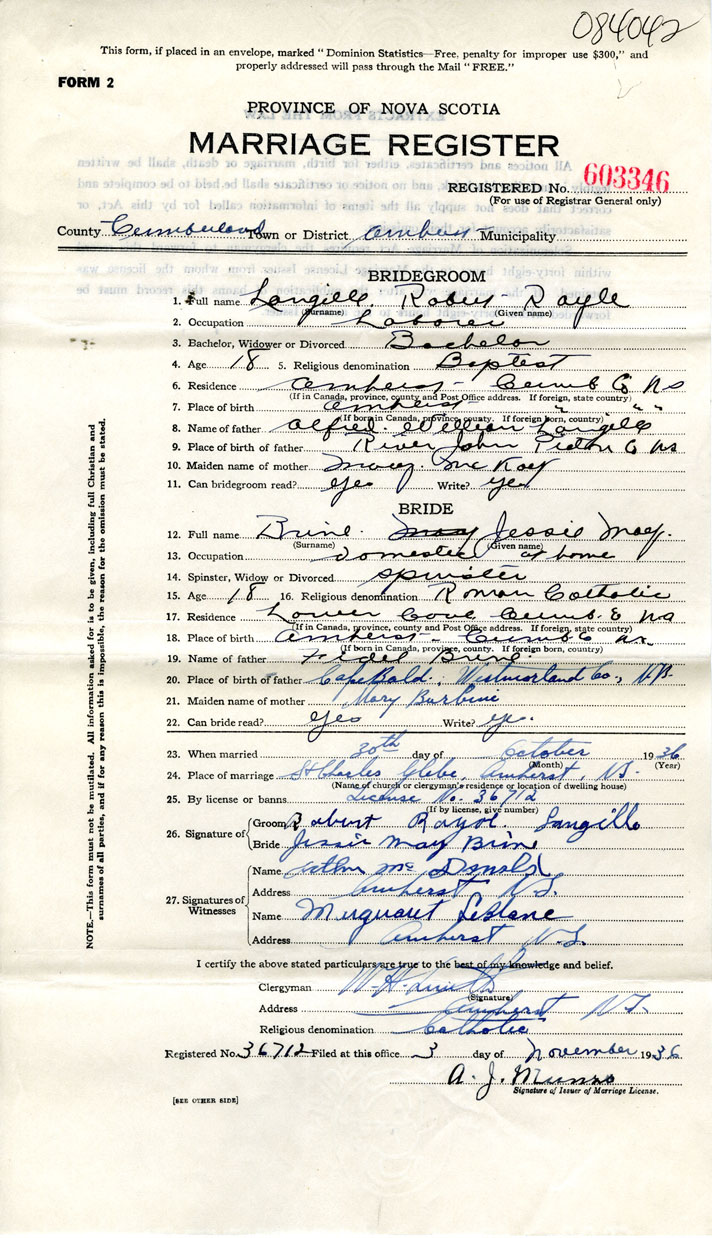 084042
This form, if placed in an envelope, marked "Dominion Statistics—Free, penalty for improper use $300," and
properly addressed will pass through the Mail "FREE."
FORM 2
PROVINCE OF NOVA SCOTIA
MARRIAGE REGISTER
REGISTERED No. 603346
(For use of Registrar General only)
County Cumberland Town or District Amherst Municipality
BRIDEGROOM
1. Full name Langille Robert Rayle
(Surname) (Given name)
2. Occupation Laborer
3. Bachelor, Widower or Divorced Bachelor
4. Age 18 5. Religious denomination Baptest
6. Residence Amherst - Cumb Co NS
(If in Canada, province, county and Post Office address. If foreign, state country)
7. Place of birth Amherst - " " "
(If born in Canada, province, county. If foreign born, country)
8. Name of father Alfred William Langille
9. Place of birth of father River John Pictou Co NS
10. Maiden name of mother Mary McKay
11. Can bridegroom read? Yes Write? yes
BRIDE
12. Full name Brine. Jessie May.
(Surname) (Given name)
13. Occupation Domestic at home
14. Spinster, Widow or Divorced Spinster
15. Age 18 16. Religious denomination Roman Catholic
17. Residence Lower Cove Cumb. Co NS
(If in Canada, province, county and Post Office address. If foreign, state country)
18. Place of birth Amherst - Cumb Co NS
(If born in Canada, province, county. If foreign born, country)
19. Name of father Fidel Brine
20. Place of birth of father Cape Bald, Westmorland Co., N.B.
21. Maiden name of mother Mary Burbine
22. Can bride read? Yes Write? yes.
23. When married 30th day of October 1936
(Month) (Year)
24. Place of marriage St Charles Glebe, Amherst, N.S.
(Name of church or clergyman's residence or location of dwelling house)
25. By license or banns License No. 36712
(If by license, give number)
26. Signature of Groom Robert Rayol Langille
Bride Jessie May Brine
27. Signatures of Witnesses Name Arthur McDonald
Address Amherst N.S.
Name Marguaret LeBlanc
Address Amherst N.S.
I certify the above stated particulars are true to the best of my knowledge and belief.
Clergyman W. H. Smith
(Signature)
Address Amherst N.S.
Religious denomination Catholic
Registered No. 36712 Filed at this office 3 day of November 1936
A. J. Munro
Signature of Issuer of Marriage License.
[SEE OTHER SIDE]
NOTE.—This form must not be mutilated. All information asked for is to be given, including full Christian and
surnames of all parties, and if for any reason this is impossible, the reason for the omission must be stated.